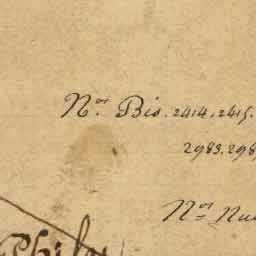 Nos. Bis. 2414. 2415.
2983. 298
Nos Nu
Phila